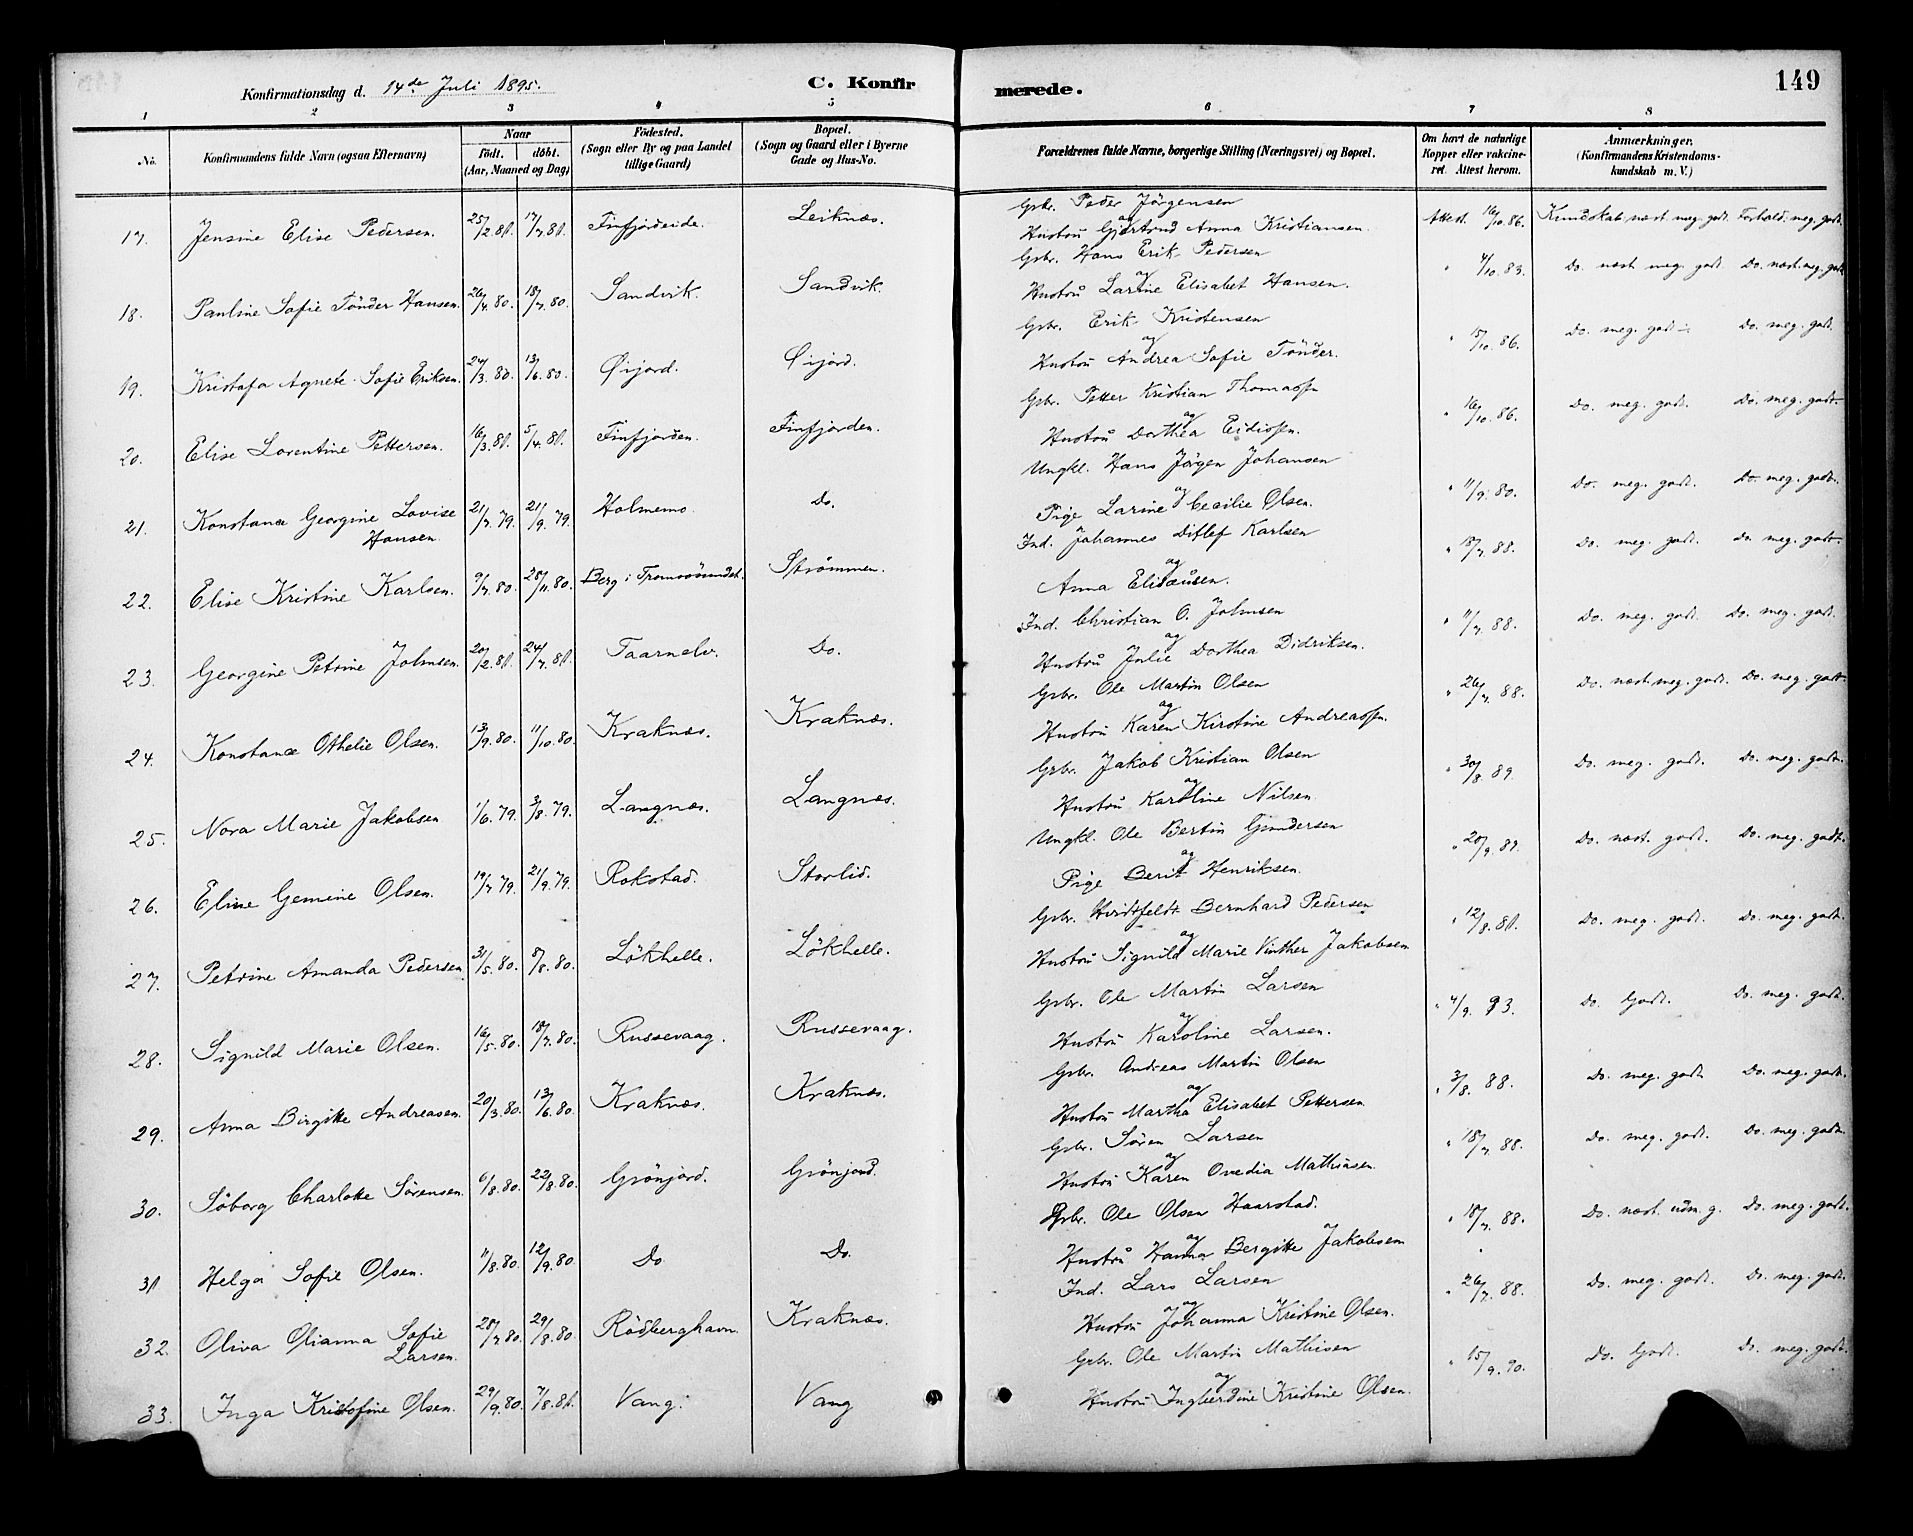 149
Konfirmationsdag d. 14de Juli 1895.
C. Konfirmerede.
1 2 3 4 5 6 7 8
No.
Konfirmandens fulde Navn (ogsaa Efternavn)
Naar
født. døbt.
(Aar, Maaned og Dag)
Fødested.
(Sogn eller By og paa Landet tillige Gaard)
Bopæl.
(Sogn og Gaard eller i Byerne Gade og Hus-No.
Forældrenes fulde Navne, borgerlige Stilling (Næringsvei) og Bopæl.
Om havt de naturlige Kopper eller vakcineret. Attest herom.
Anmærkninger.
(Konfirmandens Kristendomskundskab m. V.)
17. Jensine Elise Pedersen. 25/2.81. 17/7.81. Finfjordeide. Leiknæs. Gbr. Peder Jørgensen og Hustru Gjertrud Anna Kristiansen. Attest. 16/10.86. Kundskab næst meg. godt. Forhold. meg. godt.
18. Pauline Sofie Tønder Hansen. 26/4.80. 18/7.80. Sandvik. Sandvik. Gbr. Hans Erik Pedersen og Hustru Larine Elisabet Hansen. " 4/10.83. Do. næst meg. godt. Do. næst. meg. godt
19. Kristofa Agnete Sofie Eriksen. 24/3.80. 13/6.80. Øijord. Øijord. Gbr. Erik Kristensen og Hustru Andrea Sofie Tønder. " 15/10.86. Do. meg. godt. Do. meg. godt.
20. Elise Lorentine Pettersen. 16/3.81. 5/4.81. Finfjorden. Finfjorden. Gbr. Petter Kristian Thomassen og Hustru Dorthea Eidissen. " 16/10.86. Do. meg. godt. Do. meg. godt.
21. Konstance Georgine Lovise Hansen. 21/7.79. 21/9.79. Holmemo. Do. Ungkl. Hans Jørgen Johansen og Pige Larine Cecilie Olsen. " 11/9.80. Do. meg. godt. Do. meg. godt.
22. Elise Kristine Karlsen. 9/7.80. 28/11.80. Berg i Tromsøsundet. Strømmen. Ind. Johannes Ditlef Karlsen og Anna Elisæusen. " 18/7.88. Do. meg. godt. Do. meg. godt.
23. Georgine Petrine Johnsen. 20/2.81. 24/7.81. Taarnelv. Do. Ind. Christian O. Johnsen og Hustru Julie Dorthea Didriksen. " 11/7.88. Do. meg. godt. Do. meg. godt.
24. Konstance Othelie Olsen. 13/9.80. 11/10.80. Kraknæs. Kraknæs. Gbr. Ole Martin Olsen og Hustru Karen Kirstine Andreassen. " 26/7.88. Do. næst. meg. godt. Do. meg. godt.
25. Nora Marie Jakobsen 1/6.79. 3/8.79. Langnæs. Langnæs. Gbr. Jakob Kristian Olsen og Hustru Karoline Nilsen " 30/8.89. Do. meg. godt. Do. meg. godt.
26. Eline Gemine Olsen. 19/7.79. 21/9.79. Rokstad. Storlid. Ungkl. Ole Bertin Gundersen og Pige Berit Henriksen. " 20/9.89. Do. næst. godt. Do. meg. godt.
27. Petrine Amanda Pedersen. 31/5.80. 8/8.80. Løkhelle. Løkhelle. Gbr. Hvidtfeldt Bernhard Pedersen og Hustru Signild Marie Vinther Jakobsen " 12/8.81. Do. meg. godt. Do. meg. godt.
28. Signild Marie Olsen. 16/5.80. 18/7.80. Russevaag. Russevaag. Gbr. Ole Martin Larsen og Hustru Karoline Larsen. " 4/9.93. Do. Godt. Do. meg. godt.
29. Anna Birgitte Andreasen. 20/3.80. 13/6.80. Kraknæs. Kraknæs. Gbr. Andreas Martin Olsen og Hustru Martha Elisabet Pettersen. " 3/8.88. Do. meg. godt. Do. meg. godt.
30. Søborg Charlotte Sørensen. 6/8.80. 22/8.80. Grønjord. Grønjord. Gbr. Søren Larsen og Hustru Karen Ovedia Mathiasen. " 18/7.88. Do. meg. godt. Do. meg. godt.
31 Helga Sofie Olsen. 11/8.80. 12/9.80. Do Do. Gbr. Ole Olsen Haarstad. og Hustru Hanna Bergitte Jakobsen " 18/7.88. Do. næst. udm. g. Do. meg. godt.
32. Oliva Olianna Sofie Larsen. 28/7.80. 29/8.80. Rødberghavn. Kraknæs. Ind. Lars Larsen og Hustru Johanna Kristine Olsen. " 26/7.88. Do. meg. godt. Do. meg. godt.
33. Inga Kristofine Olsen. 29/9.80. 7/8.81. Vang. Vang Gbr. Ole Martin Mathisen og Hustru Ingberdine Kristine Olsen. " 15/9.90. Do. Godt. Do. meg. godt.